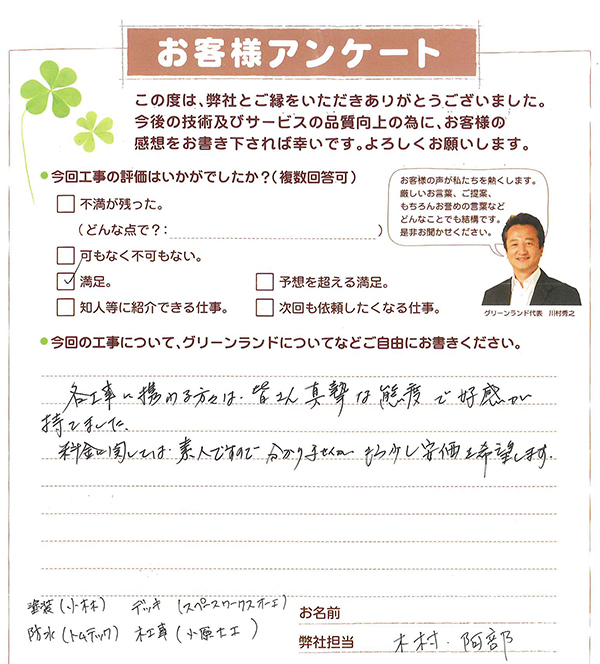 お客様アンケート
この度は、弊社とご縁をいただきありがとうございました。
今後の技術及びサービスの品質向上の為に、お客様の
感想をお書き下されば幸いです。よろしくお願いします。
●今回工事の評価はいかがでしたか?(複数回答可)
不満が残った。
(どんな点で?: )
可もなく不可もない。
満足。
予想を超える満足。
知人等に紹介できる仕事。
次回も依頼したくなる仕事。
お客様の声が私たちを熱くします。
厳しいお言葉、ご提案、
もちろんお誉めの言葉など
どんなことでも結構です。
是非お聞かせください。
グリーンランド代表 川村秀之
●今回の工事について、グリーンランドについてなどご自由にお書きください。
各工事に携わる方々は、皆さん真摯な態度で好感が
持てました。
料金に関しては、素人ですので分かりませんが もう少し安価を希望します。
塗装(小林) デッキ(スペースワークスオーエ)
防水(トムテック) 木工事(小原大工)
お名前
弊社担当 木村、阿部